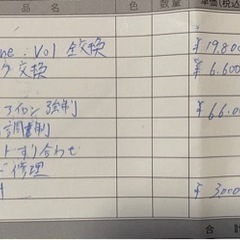 品 名 色 数量 単価(税込
one. Vol 全交換 ¥19.800
ク交換 ¥6.600
アイロン強制 ¥66.00
調整
トすり合わせ
修理
¥3000
合 計